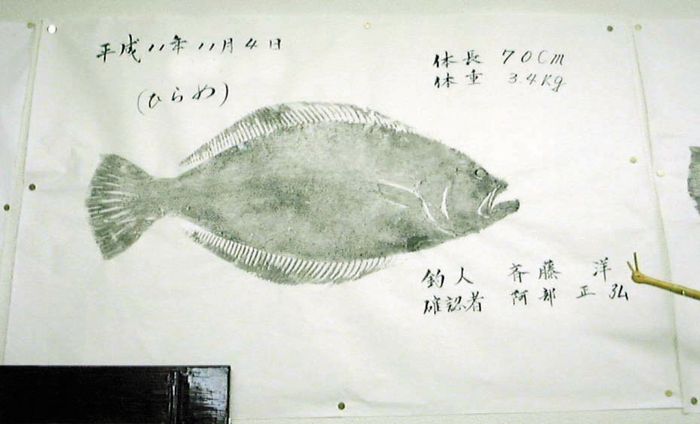 平成11年11月4日
(ひらめ)
体長 70cm
体重 3.4kg
釣人 斉藤 洋
確認者 阿部 正弘